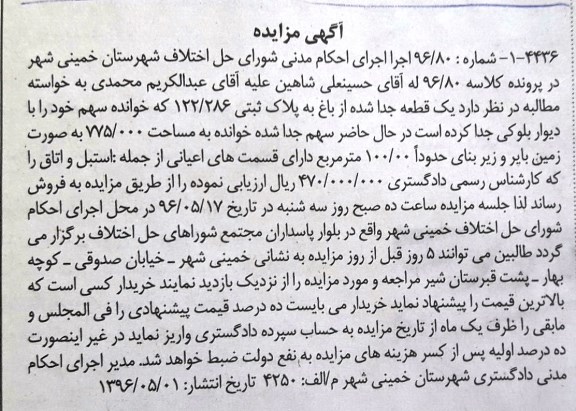 آگهی مزایده
۱-۴۴۳۶- شماره : ۹۶/۸۰ اجرا اجرای احکام مدنی شورای حل اختلاف شهرستان خمینی شهر
در پرونده کلاسه ۹۶/۸۰ له آقای حسینعلی شاهین علیه آقای عبدالکریم محمدی به خواسته
مطالبه در نظر دارد یک قطعه جدا شده از باغ به پلاک ثبتی ۱۲۲/۲۸۶ که خوانده سهم خود را با
دیوار بلوکی جدا کرده است در حال حاضر سهم جدا شده خوانده به مساحت ۷۷۵/۰۰۰ به صورت
زمین بایر و زیر بنای حدوداً ۱۰۰/۰۰ مترمربع دارای قسمت های اعیانی از جمله :استبل و اتاق را
که کارشناس رسمی دادگستری ۴۷۰/۰۰۰/۰۰۰ ریال ارزیابی نموده را از طریق مزایده به فروش
رساند لذا جلسه مزایده ساعت ده صبح روز سه شنبه در تاریخ ۹۶/۰۵/۱۷ در محل اجرای احکام
شورای حل اختلاف خمینی شهر واقع در بلوار پاسداران مجتمع شوراهای حل اختلاف برگزار می
گردد طالبین می توانند ۵ روز قبل از روز مزایده به نشانی خمینی شهر ـ خیابان صدوقی ـ کوچه
بهار ـ پشت قبرستان شیر مراجعه و مورد مزایده را از نزدیک بازدید نمایند خریدار کسی است که
بالاترین قیمت را پیشنهاد نماید خریدار می بایست ده درصد قیمت پیشنهادی را فی المجلس و
مابقی را ظرف یک ماه از تاریخ مزایده به حساب سپرده دادگستری واریز نماید در غیر اینصورت
ده درصد اولیه پس از کسر هزینه های مزایده به نفع دولت ضبط خواهد شد. مدیر اجرای احکام
مدنی دادگستری شهرستان خمینی شهر م/الف: ۴۲۵۰ تاریخ انتشار: ۱۳۹۶/۰۵/۰۱